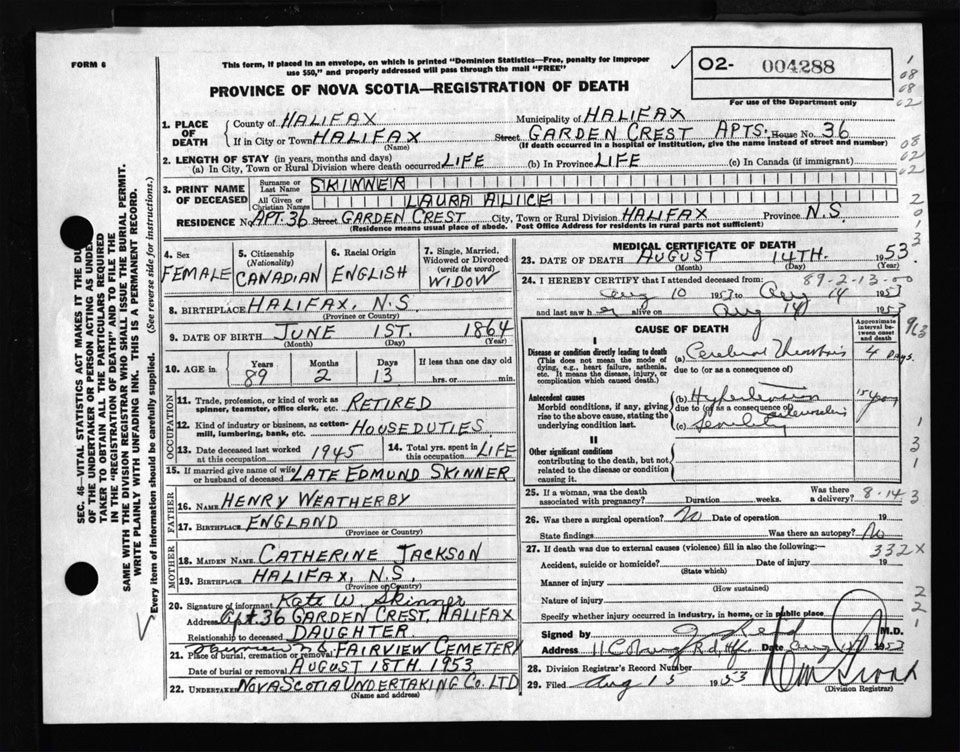 FORM 6
This form, if placed in an envelope, on which is printed "Dominion Statistics—Free, penalty for improper
use $50," and properly addressed will pass through the mail "FREE"
PROVINCE OF NOVA SCOTIA—REGISTRATION OF DEATH
02- 004288
For use of the Department only
1. PLACE OF DEATH
County of HALIFAX Municipality of HALIFAX
If in City or Town HALIFAX (Name) Street GARDEN CREST APTS. House No. 36
(If death occurred in a hospital or institution, give the name instead of street and number)
2. LENGTH OF STAY (in years, months and days)
(a) In City, Town or Rural Division where death occurred LIFE (b) In Province LIFE (c) In Canada (if immigrant)
3. PRINT NAME OF DECEASED
Surname or Last Name SKINNER
All Given or Christian Names LAURA ALICE
RESIDENCE No. APT. 36 Street GARDEN CREST City, Town or Rural Division HALIFAX Province N.S.
(Residence means usual place of abode. Post Office Address for residents in rural parts not sufficient)
4. Sex FEMALE
5. Citizenship (Nationality) CANADIAN
6. Racial Origin ENGLISH
7. Single, Married, Widowed or Divorced (write the word) WIDOW
8. BIRTHPLACE HALIFAX, N.S. (Province or Country)
9. DATE OF BIRTH JUNE 1ST. 1864
(Month) (Day) (Year)
10. AGE IN Years 89 Months 2 Days 13 If less than one day old hrs. or min.
OCCUPATION
11. Trade, profession, or kind of work as spinner, teamster, office clerk, etc. RETIRED
12. Kind of industry or business, as cotten-mill, lumbering, bank, etc. HOUSE DUTIES
13. Date deceased last worked at this occupation 1945 14. Total yrs. spent in this occupation LIFE
15. If married give name of wife or husband of deceased LATE EDMUND SKINNER
FATHER
16. NAME HENRY WEATHERBY
17. BIRTHPLACE ENGLAND
(Province or Country)
MOTHER
18. MAIDEN NAME CATHERINE JACKSON
19. BIRTHPLACE HALIFAX, N.S.
(Province or Country)
20. Signature of informant Kate W. Skinner
Address Apt. 36 GARDEN CREST, HALIFAX
Relationship to deceased DAUGHTER
21. Place of burial, cremation or removal FAIRVIEW CEMETERY
Date of burial or removal AUGUST 18TH. 1953
22. UNDERTAKER NOVA SCOTIA UNDERTAKING CO. LTD
(Name and address)
MEDICAL CERTIFICATE OF DEATH
23. DATE OF DEATH AUGUST 14TH. 1953
(Month) (Day) (Year)
24. I HEREBY CERTIFY that I attended deceased from 89-2-13-00
Aug 10 1953 to Aug 14 1953
and last saw her alive on Aug 14 1953
CAUSE OF DEATH
Approximate interval between onset and death
I
Disease or condition directly leading to death
(This does not mean the mode of dying, e.g., heart failure, asthenia, etc. It means the disease, injury, or complication which caused death.)
(a) Cerebral Thrombosis 4 DAYS.
due to (or as a consequence of)
Antecedent causes
Morbid conditions, if any, giving rise to the above cause, stating the underlying condition last.
(b) Hypertension 15 years
due to (or as a consequence of)
(c) Senility
II
Other significant conditions
contributing to the death, but not related to the disease or condition causing it.
25. If a woman, was the death associated with pregnancy? Duration weeks. Was there a delivery?
8-14 3
26. Was there a surgical operation? No Date of operation 19
State findings Was there an autopsy? No
27. If death was due to external causes (violence) fill in also the following:—
332X
Accident, suicide or homicide? Date of injury 19
(State which)
Manner of injury
(How sustained)
Nature of injury
Specify whether injury occurred in industry, in home, or in public place
Signed by M.D.
Address Date Aug 1953
28. Division Registrar's Record Number
29. Filed Aug 15 1953
(Division Registrar)
SEC. 46—VITAL STATISTICS ACT MAKES IT THE
OF THE UNDERTAKER OR PERSON ACTING AS UNDER
TAKER TO OBTAIN ALL THE PARTICULARS REQUIRED
IN THE "REGISTRATION OF DEATH" AND TO FILE THE
SAME WITH THE DIVISION REGISTRAR WHO SHALL ISSUE THE BURIAL PERMIT.
WRITE PLAINLY WITH UNFADING INK. THIS IS A PERMANENT RECORD.
Every item of information should be carefully supplied. (See reverse side for instructions.)